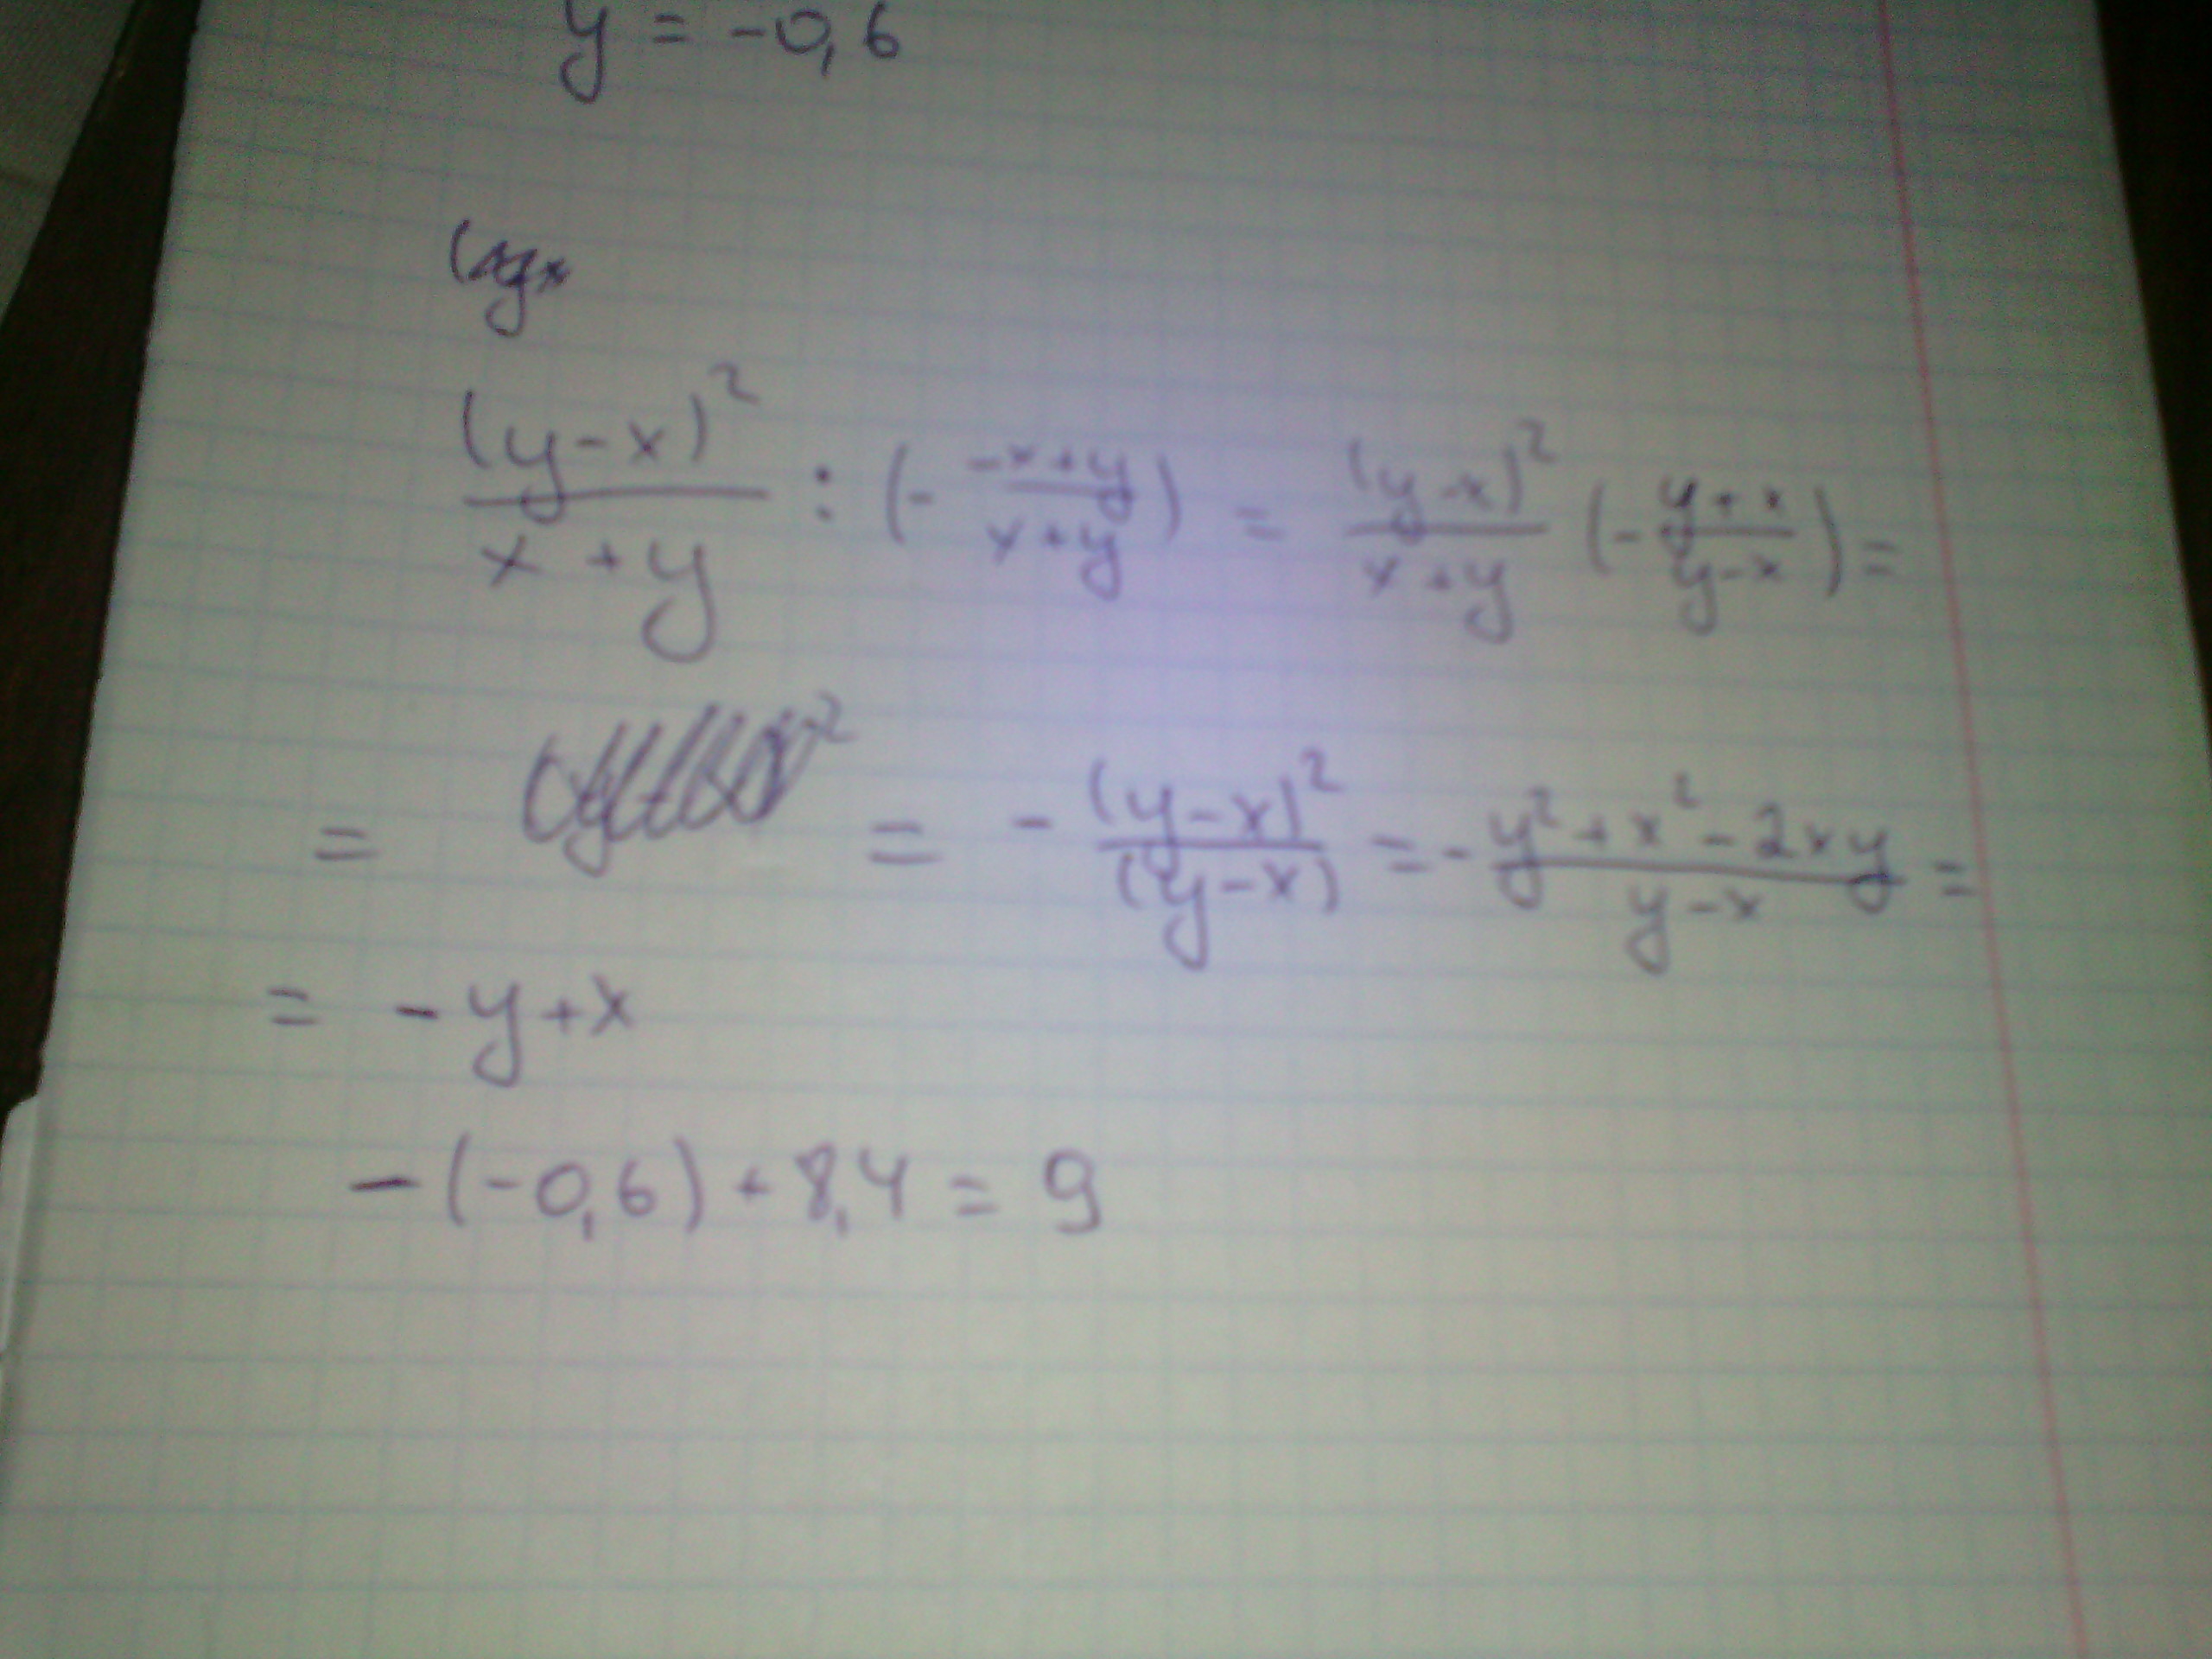 y = -0,6
(y-x)² / x+y : (- -x+y / x+y) = (y-x)² / x+y (- y+x / y-x) =
= = - (y-x)² / (y-x) = - y²+x²-2xy / y-x =
= -y+x
-(-0,6)+8,4 = 9